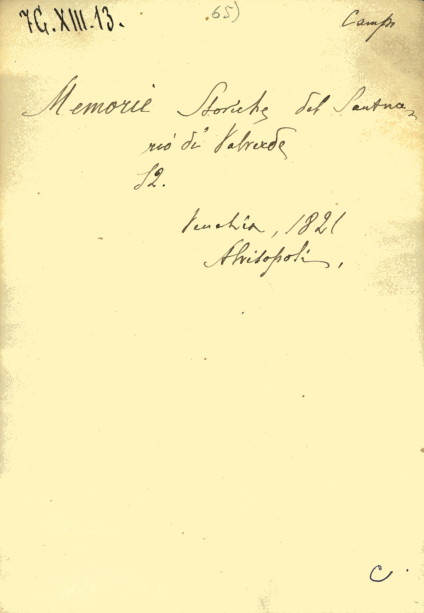 7G.XIII.13.
.65)
Camp
Memorie Storiche del Santua,
rio di Valverde
12.
Venezia, 1821
Alvisopoli,
C.